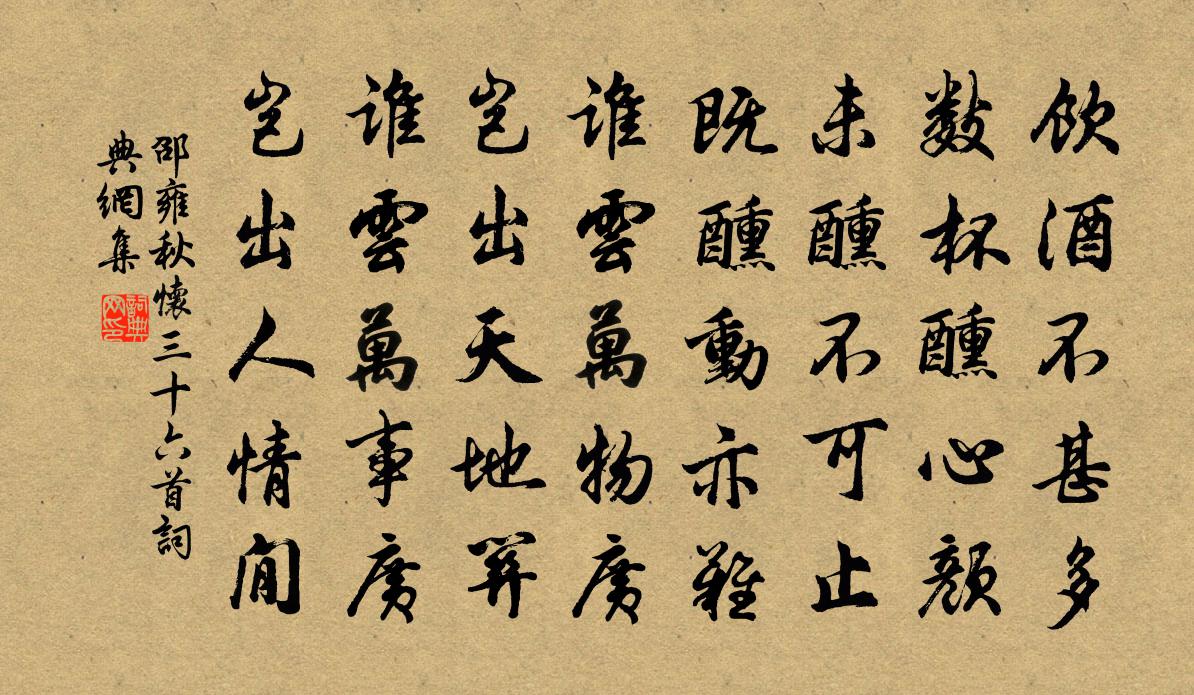 飲酒不甚多
數杯醺心顏
未醺不可止
既醺動亦難
誰雲萬物廣
豈出天地關
誰雲萬事廣
豈出人情間
邵雍秋懷三十六首詞
典網集
詞典
网印